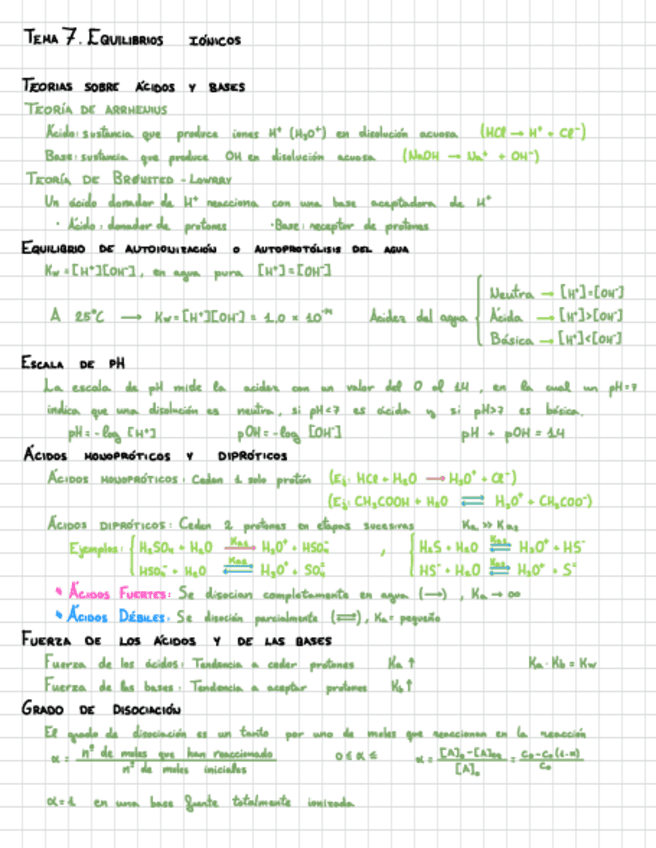 TEMA 7. EQUILIBRIOS IÓNICOS
TEORIAS SOBRE ÁCIDOS Y BASES
TEORÍA DE ARRHENIUS
Ácido: sustancia que produce iones H⁺ (H₃O⁺) en disolución acuosa (HCl → H⁺ + Cl⁻)
Base: sustancia que produce OH en disolución acuosa (NaOH → Na⁺ + OH⁻)
TEORÍA DE BRØNSTED - LOWRY
Un ácido donador de H⁺ reacciona con una base aceptadora de H⁺
· Ácido: donador de protones ·Base: receptor de protones
EQUILIBRIO DE AUTOIONIZACIÓN O AUTOPROTÓLISIS DEL AGUA
Kw = [H⁺][OH⁻], en agua pura [H⁺]=[OH⁻]
Neutra → [H⁺]=[OH⁻]
A 25ºC → Kw=[H⁺][OH⁻] = 1,0 × 10⁻¹⁴ Acidez del agua Ácida → [H⁺]>[OH⁻]
Básica → [H⁺]<[OH⁻]
ESCALA DE PH
La escala de pH mide la acidez con un valor del 0 al 14, en la cual un pH=7
indica que una disolución es neutra, si pH<7 es ácida y si pH>7 es básica.
pH=-log [H⁺] pOH=-log [OH⁻] pH + pOH = 14
ÁCIDOS MONOPRÓTICOS Y DIPRÓTICOS
ÁCIDOS MONOPRÓTICOS: Ceden 1 solo protón (Ej: HCl + H₂O → H₃O⁺ + Cl⁻)
(Ej: CH₃COOH + H₂O ⇌ H₃O⁺ + CH₃COO⁻)
ÁCIDOS DIPRÓTICOS: Ceden 2 protones en etapas sucesivas Ka₁ >> Ka₂
Ejemplos: H₂SO₄ + H₂O →(Ka₁) H₃O⁺ + HSO₄⁻ , H₂S + H₂O ⇌(Ka₁) H₃O⁺ + HS⁻
HSO₄⁻ + H₂O ⇌(Ka₂) H₃O⁺ + SO₄²⁻ HS⁻ + H₂O ⇌(Ka₂) H₃O⁺ + S²⁻
* ÁCIDOS FUERTES: Se disocian completamente en agua (→), Ka → ∞
* ÁCIDOS DÉBILES: Se disocian parcialmente (⇌), Ka = pequeña
FUERZA DE LOS ÁCIDOS Y DE LAS BASES
Fuerza de los ácidos: Tendencia a ceder protones Ka ↑ Ka · Kb = Kw
Fuerza de las bases: Tendencia a aceptar protones Kb ↑
GRADO DE DISOCIACIÓN
El grado de disociación es un tanto por uno de moles que reaccionan en la reacción
α = nº de moles que han reaccionado / nº de moles iniciales 0 ≤ α ≤ α = [A]₀-[A]eq / [A]₀ = C₀-C₀(1-α) / C₀
α=1 en una base fuerte totalmente ionizada